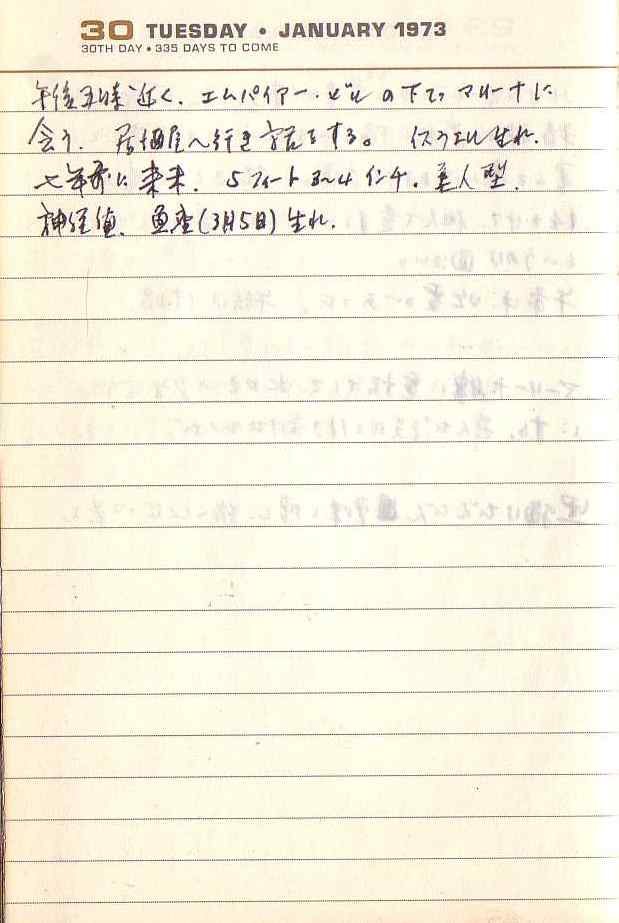 30 TUESDAY • JANUARY 1973
30TH DAY • 335 DAYS TO COME
午後五時近く、エムパイアー・ビルの下で、マリーナに
会う。居酒屋へ行き話をする。イスラエル生れ。
七年前に来米。5フィート3〜4インチ。美人型。
神経値、魚座(3月5日)生れ。